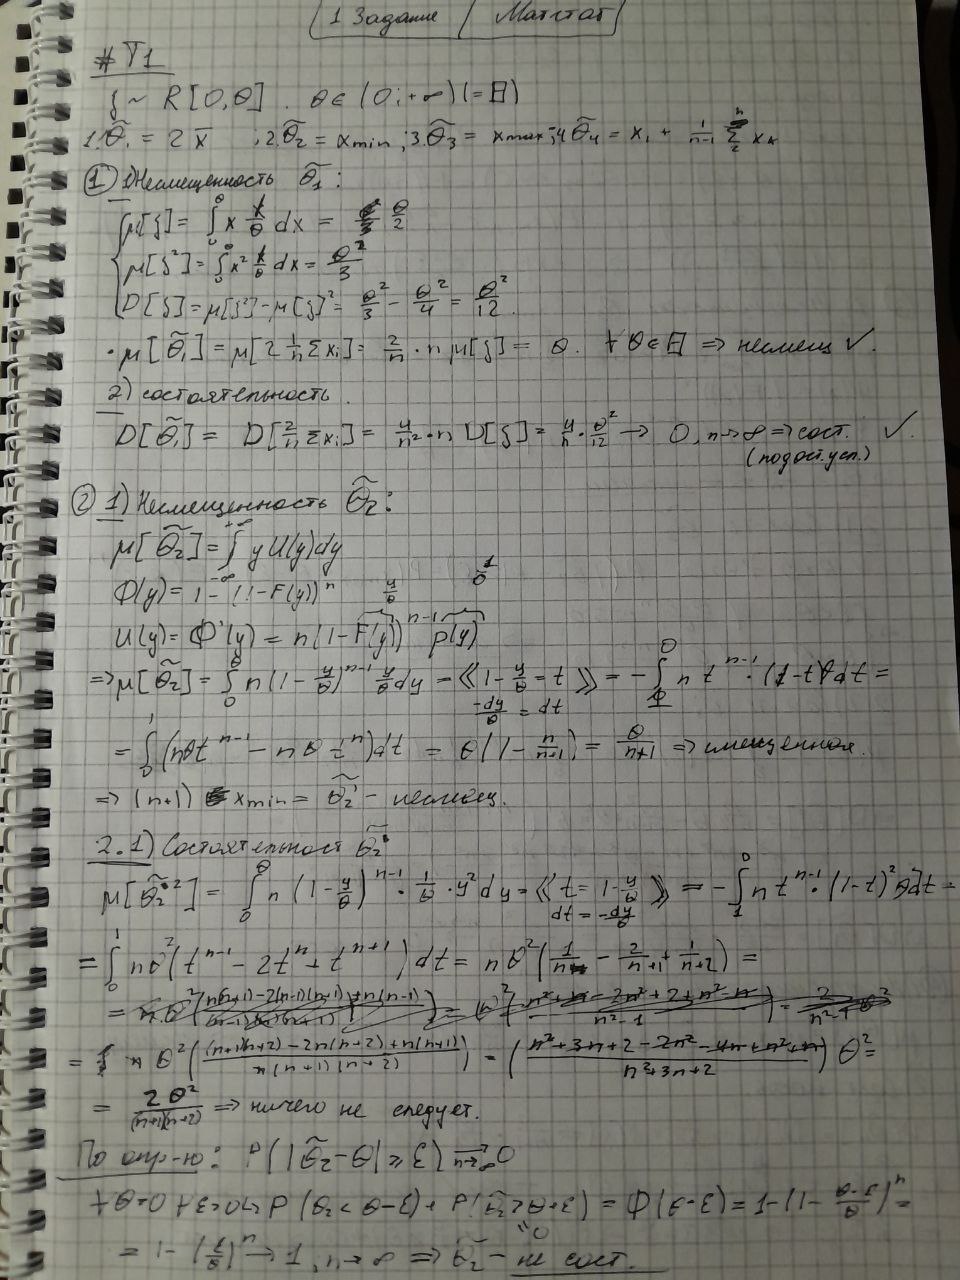 1 Задание / Матстат
# T1
ξ ~ R[0,θ] . θ ∈ (0; +∞) (= Θ)
1. θ̃₁ = 2x̄ ; 2. θ̃₂ = xmin ; 3. θ̃₃ = xmax ; 4 θ̃₄ = x₁ + 1/(n-1) Σ₂ⁿ xₖ
① 1) Несмещенность θ̃₁ :
μ[ξ] = ∫₀^θ x 1/θ dx = θ/2
μ[ξ²] = ∫₀^θ x² 1/θ dx = θ²/3
D[ξ] = μ[ξ²] - μ[ξ]² = θ²/3 - θ²/4 = θ²/12 .
• μ[θ̃₁] = μ[2 1/n Σxᵢ] = 2/n · n μ[ξ] = θ . ∀ θ ∈ Θ ⇒ несмещ ✓.
2) состоятельность .
D[θ̃₁] = D[2/n Σxᵢ] = 4/n² · n D[ξ] = 4/n · θ²/12 → 0, n→∞ ⇒ сост. ✓.
(по дост. усл.)
② 1) Несмещенность θ̃₂ :
μ[θ̃₂] = ∫_{-∞}^{+∞} y U(y) dy
Φ(y) = 1 - (1-F(y))ⁿ y/θ 1/θ
U(y) = Φ'(y) = n(1-F(y))ⁿ⁻¹ p(y)
⇒ μ[θ̃₂] = ∫₀^θ n(1 - y/θ)ⁿ⁻¹ y/θ dy = ⟪1 - y/θ = t⟫ = -∫₁⁰ n tⁿ⁻¹ · (1-t)θ dt =
-dy/θ = dt
= ∫₀¹ (nθtⁿ⁻¹ - nθtⁿ) dt = θ(1 - n/(n+1)) = θ/(n+1) ⇒ смещенная.
⇒ (n+1) xmin = θ̃₂' - несмещ.
2.1) Состоятельност θ̃₂
μ[θ̃₂²] = ∫₀^θ n(1 - y/θ)ⁿ⁻¹ · 1/θ · y² dy = ⟪t = 1 - y/θ⟫ = -∫₁⁰ n tⁿ⁻¹ · (1-t)² θ² dt =
dt = -dy/θ
= ∫₀¹ nθ² (tⁿ⁻¹ - 2tⁿ + tⁿ⁺¹) dt = nθ² (1/n - 2/(n+1) + 1/(n+2)) =
= n θ² (((n+1)(n+2) - 2n(n+2) + n(n+1)) / (n(n+1)(n+2))) = ((n² + 3n + 2 - 2n² - 4n + n² + n) / (n² + 3n + 2)) θ² =
= 2θ²/((n+1)(n+2)) ⇒ ничего не следует.
По опр-ю: P(|θ̃₂ - θ| ≥ ε) →_{n→∞} 0
∀θ>0 ∀ε>0 ↪ P(θ̃₂ < θ-ε) + P(θ̃₂ > θ+ε) = Φ(θ-ε) = 1 - (1 - (θ-ε)/θ)ⁿ =
"0
= 1 - (ε/θ)ⁿ → 1, n→∞ ⇒ θ̃₂ - не сост.